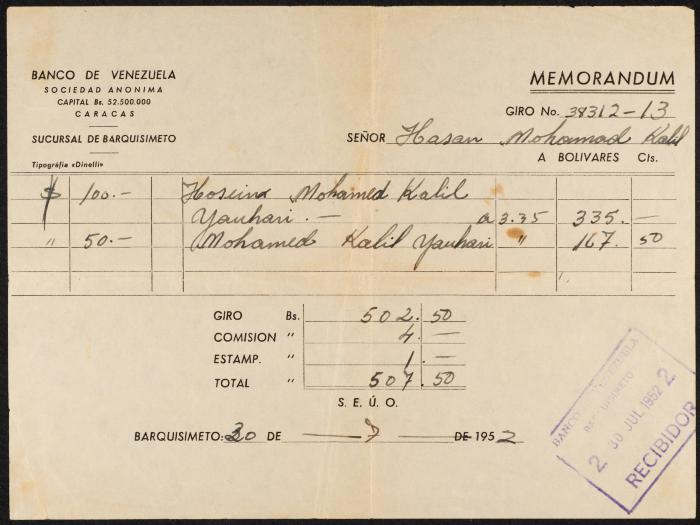 BANCO DE VENEZUELA
SOCIEDAD ANONIMA
CAPITAL Bs. 52.500.000
CARACAS
SUCURSAL DE BARQUISIMETO
Tipográfia «Dinelli»
MEMORANDUM
GIRO No. 38312-13
SEÑOR Hasan Mohamad Kalil
A BOLIVARES Cts.
$ 100.— Hoseina Mohamed Kalil
Yauhari.— a 3.35 335.—
" 50.— Mohamed Kalil Yauhari " 167. 50
GIRO Bs. 502. 50
COMISION " 4. —
ESTAMP. " 1. —
TOTAL " 507. 50
S. E. Ú. O.
BARQUISIMETO: 30 DE — 7 — DE 1952
BANCO VENEZUELA
BARQUISIMETO
2 30 JUL 1952 2
RECIBIDOR